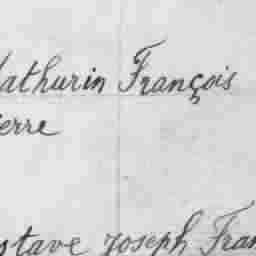 Mathurin François
ierre
stave Joseph Fran